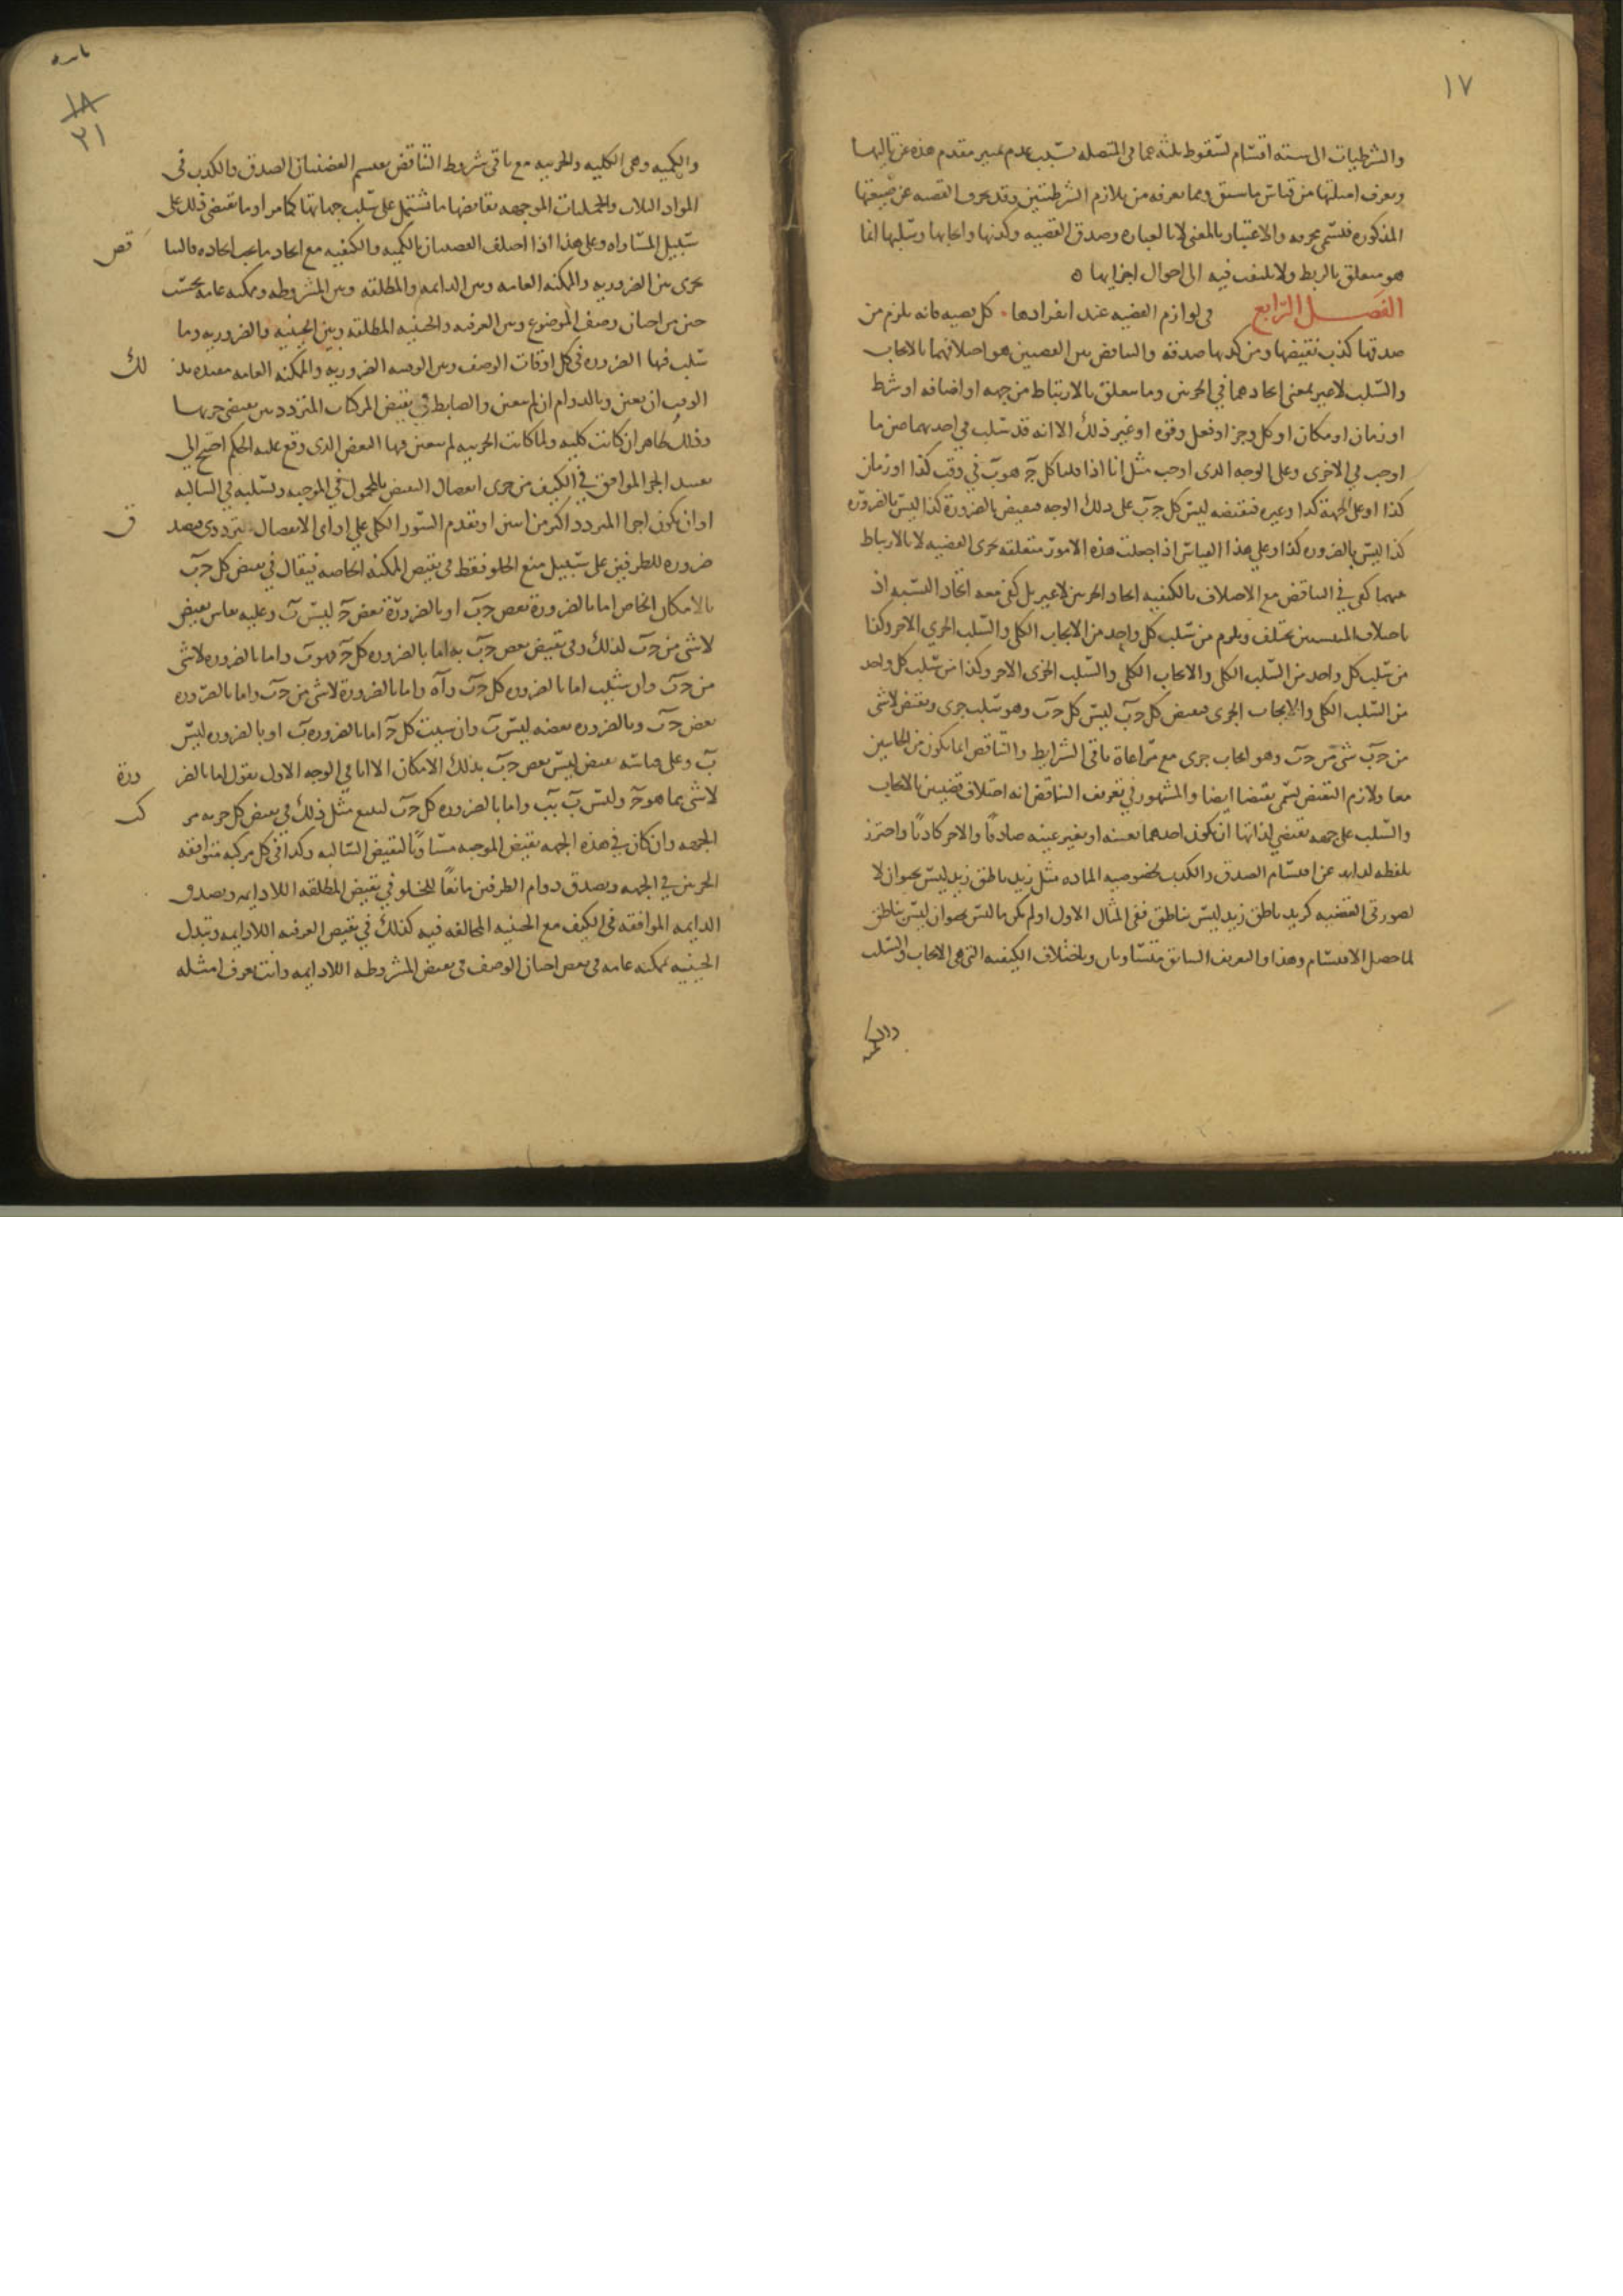 ١٧
والشرطيات الى ستة اقسام لسقوط ثلثة مما فى المتصله بسبب عدم تميز مقدم هذه عن تاليها
وتعرف امثلتها من قياس ما سبق ومما تعرفه من تلازم الشرطيتين وقد تحرف القضيه عن صيغتها
المذكوره فتسمى محرفه والاعتبار بالمعنى لا بالعباره وصدق القضيه وكذبها وايجابها وسلبها انما
هو متعلق بالربط ولا يلتفت فيه الى احوال اجزايها ه
الفصــل الرابع فى لوازم القضيه عند انفرادها . كل قضيه فانه يلزم من
صدقها كذب نقيضها ومن كذبها صدقه والتناقض بين القضيتين هو اختلافهما بالايجاب
والسلب لا غير بمعنى اتحادهما في الجزئين وما يتعلق بالارتباط من جهه او اضافه او شرط
او زمان او مكان او كل وجزء او فعل وقوه او غير ذلك الا انه قد سلب في احديهما عين ما
اوجب في الاخرى وعلى الوجه الذى اوجب مثل انا اذا قلنا كل جـ هو ب في وقت كذا او زمان
كذا او على الجهة كذا وغيره فنقيضه ليس كل جـ ب على ذلك الوجه فنقيض بالضرورة كذا ليس بالضروره
كذا ليس بالضروره كذا وعلى هذا القياس اذا جعلت هذه الامور متعلقه بجزئى القضيه لا بالارتباط
بينهما كفى في التناقض مع الاختلاف بالكيفيه اتحاد الجزئين لا غير بل كفى معه اتحاد النسبه اذ
باختلاف المنتسبين تختلف ويلزم من سلب كل واحد من الايجاب الكلى والسلب الجزئي الاخر وكذا
من سلب كل واحد من السلب الكلى والايجاب الكلى والسلب الجزى الاخر وكذا من سلب كل واحد
من السلب الكلى والايجاب الجزى فنقيض كل جـ ب ليس كل جـ ب وهو سلب جزى ونقيض لا شى
من جـ ب شى من جـ ب وهو ايجاب جزى مع مراعاة باقى الشرايط والتناقض انما يكون من الجانبين
معا ولازم النقيض تسمى نقيضا ايضا والمشهور في تعريف التناقض انه اختلاف قضيتين بالايجاب
والسلب على جهه تقتضي لذاتها ان تكون احدهما بعينه او بغير عينه صادقا والاخر كاذبا واحترز
بلفظه لذاته عن اقتسام الصدق والكذب لخصوصيه الماده مثل زيد ناطق زيد ليس بحيوان لا
لصورتى القضيه كزيد ناطق زيد ليس بناطق ففى المثال الاول او لم يكن ما ليس بحيوان ليس بناطق
لما حصل الاقتسام وهذا والتعريف السابق متساويان وباختلاف الكيفيه التى هى الايجاب والسلب
١٨
٢١
والكميه وهى الكليه والجزييه مع باقى شروط التناقض تقتسم القضيتان الصدق والكذب فى
المواد الثلاث والحمليات الموجهه نقايضها ما تشتمل على سلب جهاتها كما مر او ما تقتضى ذلك على
سبيل المساواه وعلى هذا اذا اختلف القضيتان بالكميه والكيفيه مع اتحاد ما يجب اتحاده فالتنا قض
يجرى بين الضروريه والممكنه العامه وبين الدايمه والمطلقه وبين المشروطه وممكنه عامه بحسب
حين من احيان وصف الموضوع وبين العرفيه والحينيه المطلقه وبين الحينيه والضروريه وما
سلب فيها الضروره فى كل اوقات الوصف وبين الوقتيه الضروريه والممكنه العامه مقيده بذ لك
الوقت ان تعين وبالدوام ان لم يتعين والضابط في نقيض المركبات المتردد بين نقيضى جزيها
وذلك ظاهر ان كانت كليه ولما كانت الجزييه لم يتعين فيها البعض الذى وقع عليه الحكم احتيج الى
تقييد الجزء الموافق في الكيف من جزى انفصال النقيض بالمحمول في الموجبه وبسلبه في السالبه
او ان تكون اجزا المتردد اكثر من اثنين او تقدم السور الكلى على اداى الانفصال
ضروره للطرفين على سبيل منع الخلو فقط فى نقيض الممكنه الخاصه فيقال في نقيض كل جـ ب
بالامكان الخاص اما بالضرورة بعض جـ ب او بالضرورة بعض جـ ليس ب وعليه يقاس نقيض
لا شى من جـ ب لذلك وفى نقيض بعض جـ ب به اما بالضروره كل جـ هو ب واما بالضروره لا شى
من جـ ب وان شيت اما بالضروره كل جـ ب واما بالضرورة لا شى من جـ ب واما بالضروره
بعض جـ ب وبالضروره بعضه ليس ب وان شيت كل جـ اما بالضروره ب او بالضروره ليس
ب وعلى قياسه نقيض ليس بعض جـ ب بذلك الامكان الا انا في الوجه الاول نقول اما بالضر ورة
لا شى مما هو جـ وليس ب ب واما بالضروره كل جـ ب
الجهه وان كان في هذه الجهه نقيض الموجبه مساويا لنقيض السالبه وكذا فى كل مركبه متوافقه
الجزئين في الجهه ويصدق دوام الطرفين مانعا للخلو في نقيض المطلقه اللادايمه ويصدق
الدايمه الموافقه فى الكيف مع الحينيه المخالفه فيه كذلك في نقيض العرفيه اللادايمه وتبدل
الحينيه بممكنه عامه فى بعض احيان الوصف فى نقيض المشروطه اللادايمه وانت تعرف امثله